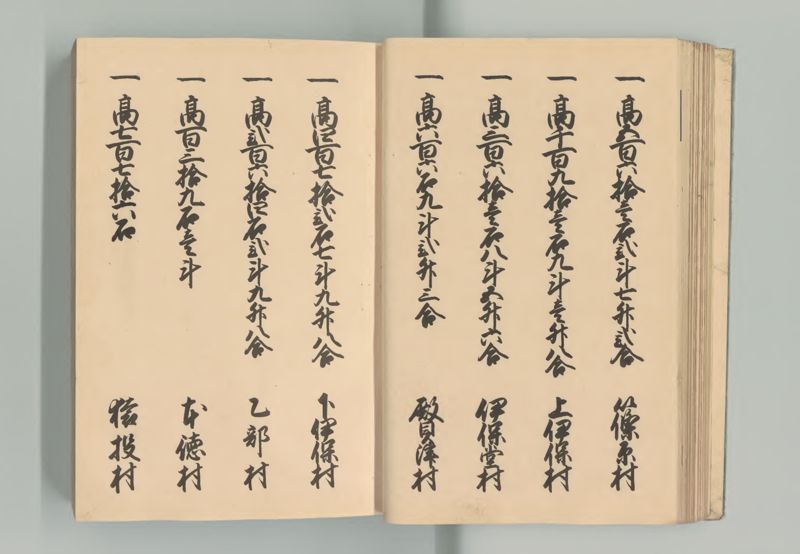 一 高五百六拾壱石弐斗七升弐合 篠原村
一 高千百九拾壱石九斗壱升八合 上伊保村
一 高三百六拾壱石八斗五升六合 伊保堂村
一 高六百六石九斗弐升三合 貝津村
一 高四百七拾弐石七斗九升八合 下伊保村
一 高弐百六拾四石弐斗九升八合 乙部村
一 高百三拾九石壱斗 本徳村
一 高七百七拾六石 猿投村